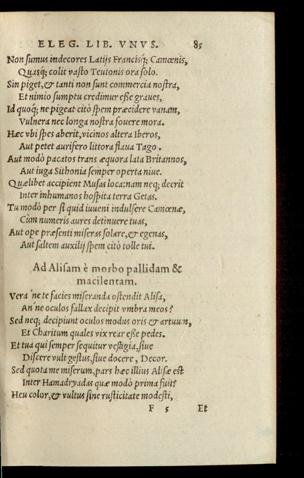 ELEG. LIB. VNVS. 85
Non sumus indecores Latijs Francisq; Camœnis,
Quasq; colit vasto Teutonis ora solo.
Sin piget, & tanti non sunt commercia nostra,
Et nimio sumptu credimur esse graues,
Id quoq; ne pigeat citò spem præcidere vanam,
Vulnera nec longa nostra fouere mora.
Hæc vbi spes aberit, vicinos altera Iberos,
Aut petet aurifero littora flaua Tago.
Aut modò pacatos trans æquora lata Britannos,
Aut iuga Sithonia semper operta niue.
Quælibet accipient Musas loca: nam neq; deerit
Inter inhumanos hospita terra Getas.
Tu modò per si quid iuueni indulsere Camœnæ,
Cùm numeris aures detinuere tuas,
Aut ope præsenti miseras solare, & egenas,
Aut saltem auxilij spem citò tolle tui.
Ad Alisam è morbo pallidam &
macilentam.
Vera 'ne te facies miseranda ostendit Alisa,
An'ne oculos fallax decipit vmbra meos?
Sed neq; decipiunt oculos modus oris & artuum,
Et Charitum quales vix rear esse pedes.
Et tua qui semper sequitur vestigia, siue
Discere vult gestus, siue docere, Decor.
Sed quota me miserum, pars hæc illius Alisæ est
Inter Hamadryadas quæ modò prima fuit?
Heu color, & vultus sine rusticitate modesti,
F 5 Et